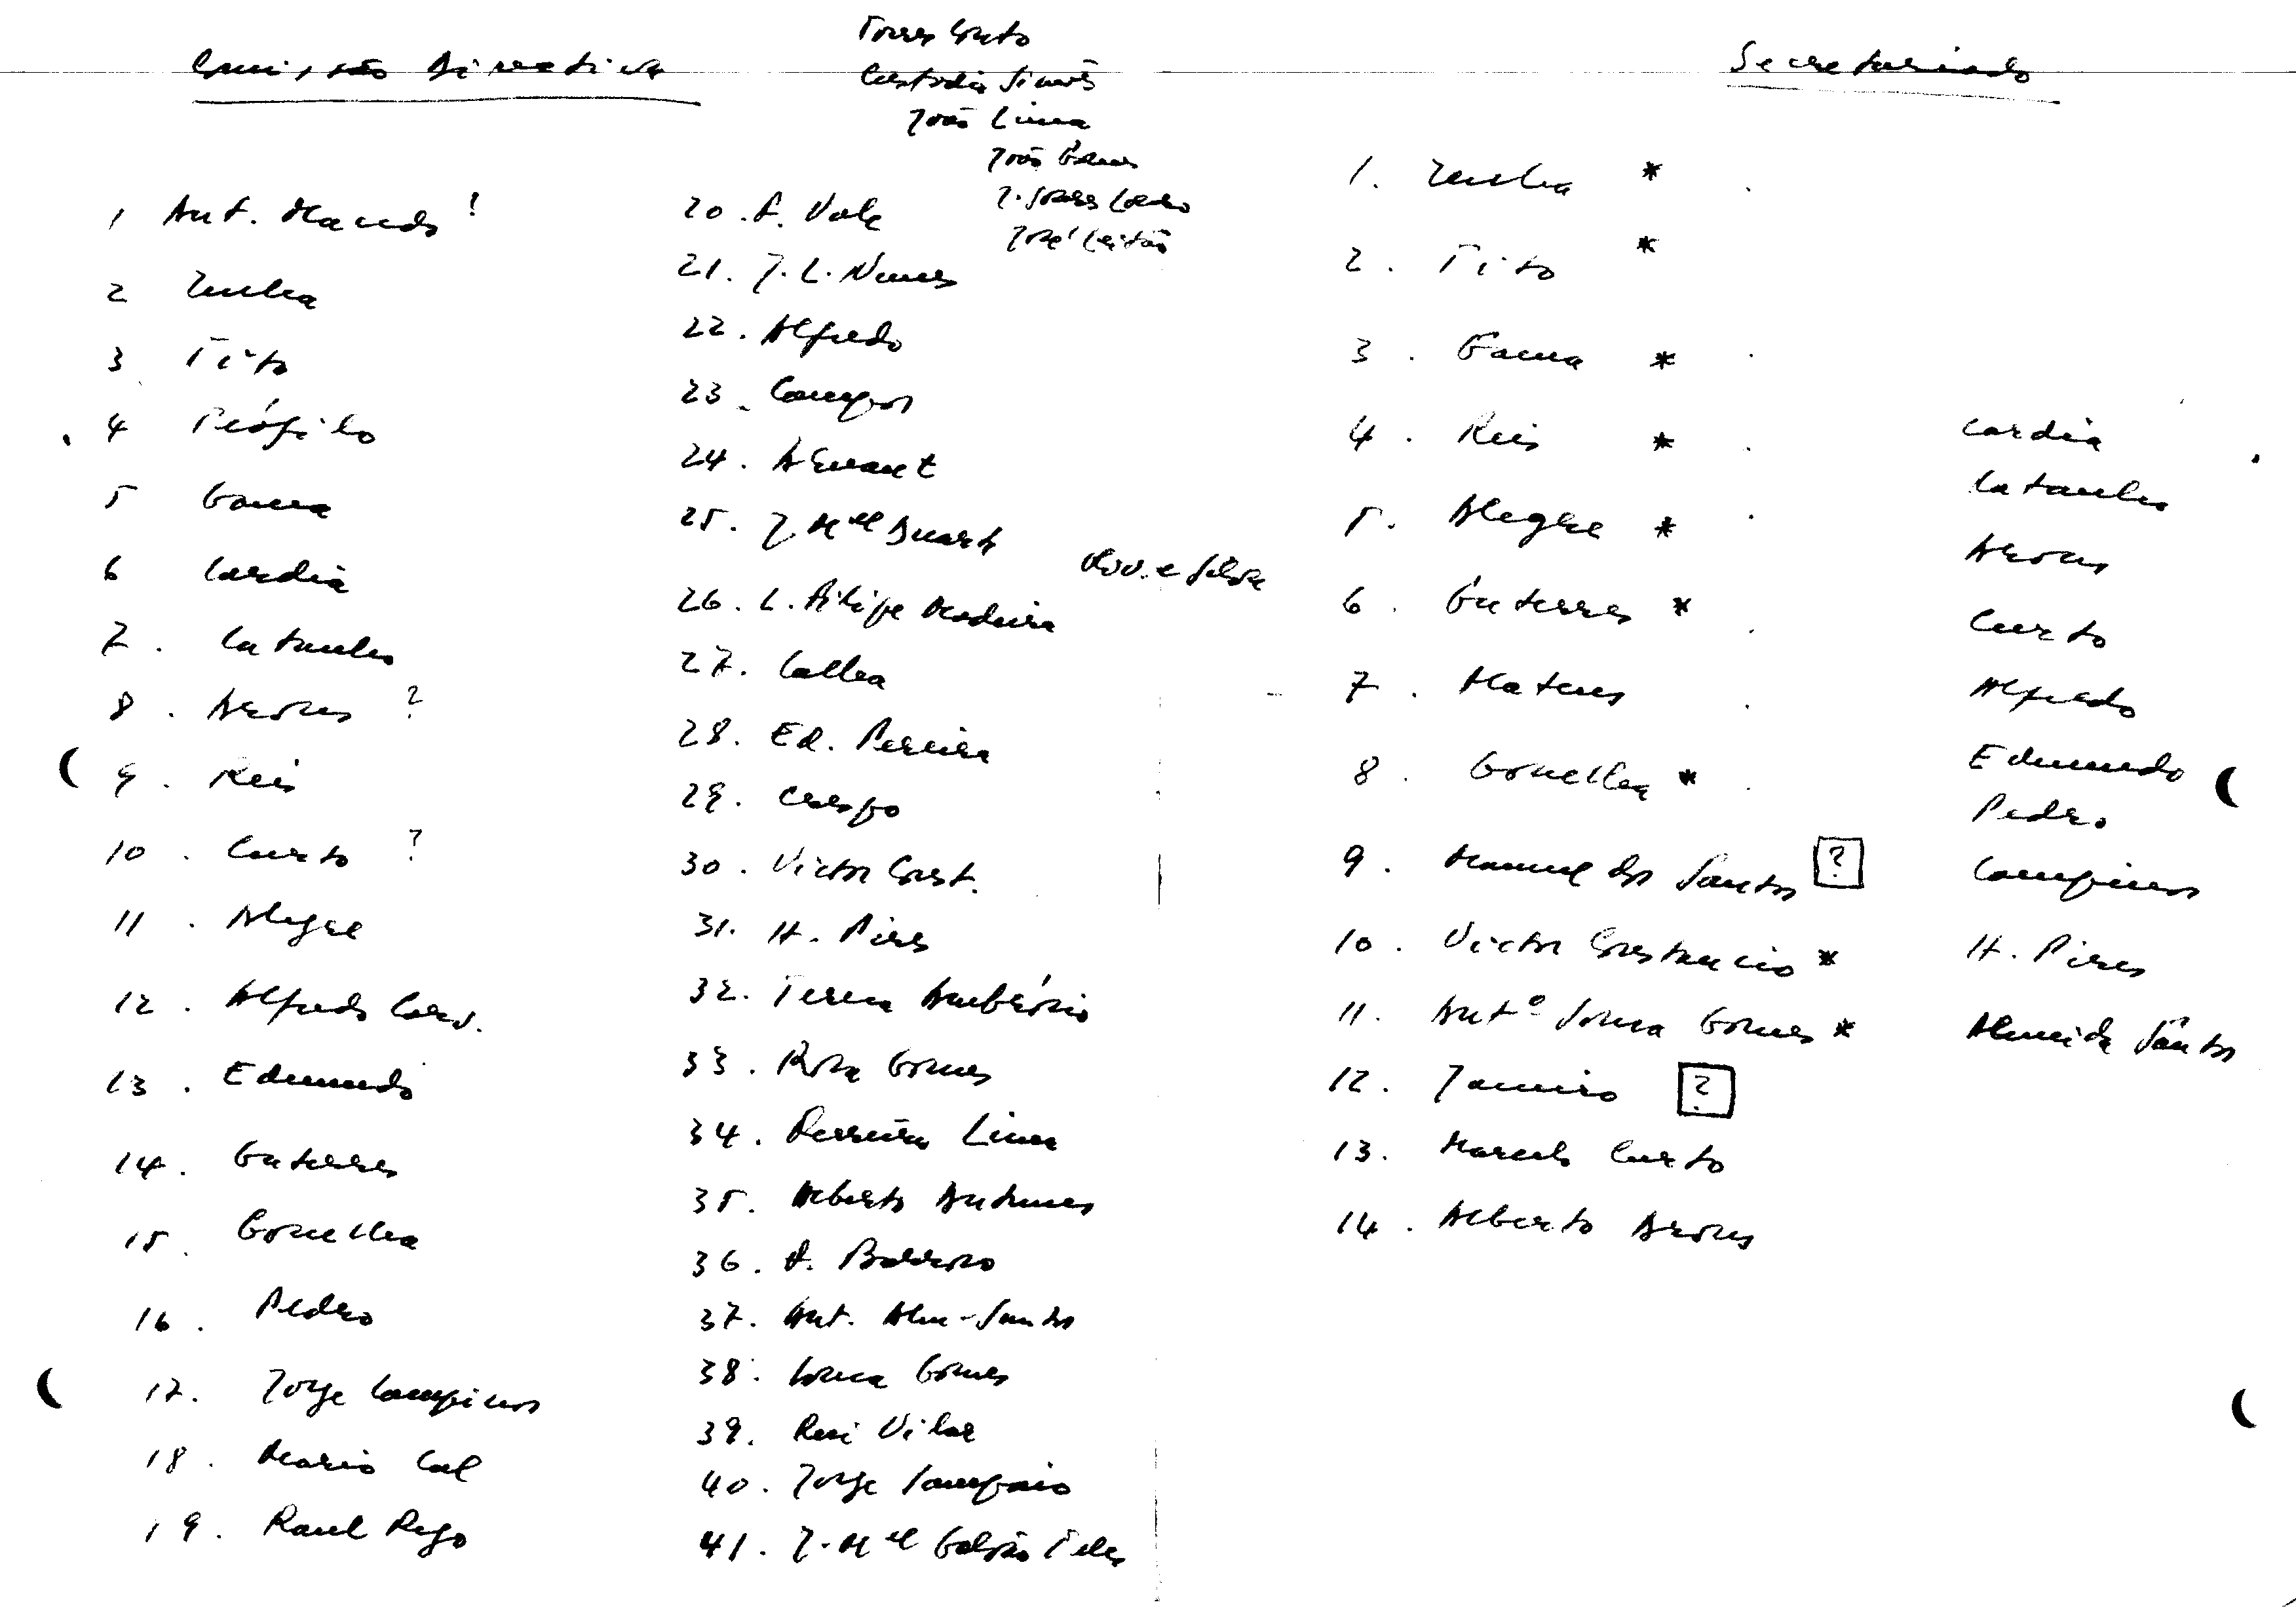 Comissão Directiva
1 Ant. Macedo ?
2 Zenha
3 Tito
4 Teófilo
5 Gama
6 Cardia
7. Catanho
8. Arons ?
9. Reis
10. Curto ?
11. Alegre
12. Alfredo Carv.
13. Edmundo
14. Guterres
15. Gonelha
16. Pedro
17. Jorge Campinos
18. Mario Cal
19. Raul Rego
Torres Couto
Custodio Simões
João Lima
João Gomes
J. Soares
José Leitão
20. F. Vale
21. J. L. Nunes
22. Alfredo
23. Campos
24. Arnaut
25. J. Mel Duarte
e Silva
26. L. Filipe Madeira
27. Callea
28. Ed. Pereira
29. Crespo
30. Victor Const.
31. H. Pires
32. Teresa Ambrósio
33. Gomes
34. Ferreira Lima
35. Alberto Antunes
36. A. Barroso
37. Ant. Alm-Santos
38. Sousa Gomes
39. Rui Vilar
40. Jorge Sampaio
41. J. Mel Galvão Teles
Secretariado
1. Zenha *
2. Tito *
3. Gama *
4. Reis *
5. Alegre *
6. Guterres *
7. Mateus
8. Gonelha *
9. Manuel dos Santos ?
10. Victor Constancio *
11. Antº Sousa Gomes *
12. Janeiro ?
13. Marcelo Curto
14. Alberto Arons
Cardia
Catanho
Arons
Curto
Alfredo
Edmundo
Pedro
Campinos
H. Pires
Almeida Santos